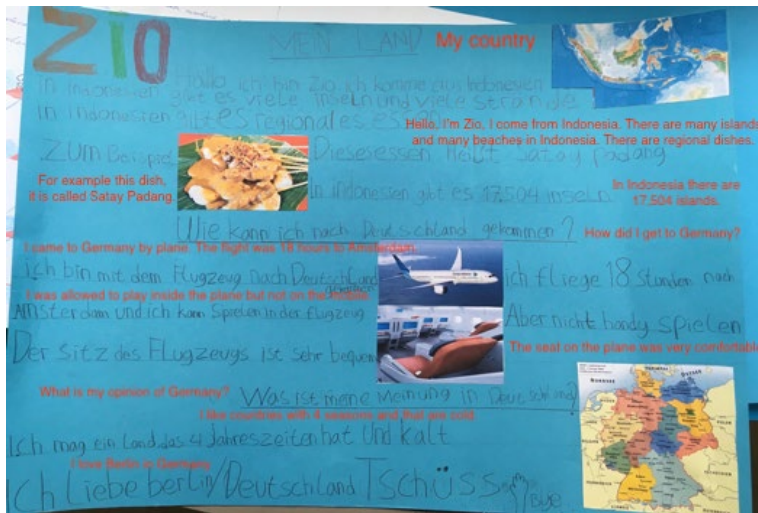 ZIO
MEIN LAND My country
Hallo ich bin Zio ich komme aus Indonesien
in Indonesien gibt es viele inseln und viele strände
in Indonesien gibt es regionales essen
Hello, I'm Zio, I come from Indonesia. There are many islands
and many beaches in Indonesia. There are regional dishes.
Zum Beispiel Dieses essen heißt Satay Padang
For example this dish,
it is called Satay Padang.
in indonesien gibt es 17.504 inseln
In Indonesia there are
17,504 islands.
Wie kann ich nach Deutschland gekommen? How did I get to Germany?
I came to Germany by plane. The flight was 18 hours to Amsterdam.
ich bin mit dem Flugzeug nach Deutschland ich fliege 18 Stunden nach
I was allowed to play inside the plane but not on the mobile.
Amsterdam und ich kann Spielen in der flugzeug Aber nicht handy spielen
Der sitz des Flugzeugs ist sehr bequem
The seat on the plane was very comfortable
What is my opinion of Germany? Was ist meine Meinung in Deutschland?
I like countries with 4 seasons and that are cold.
Ich mag ein Land, das 4 Jahreszeiten hat und kalt
I love Berlin in Germany
Ich Liebe berlin/Deutschland Tschüss